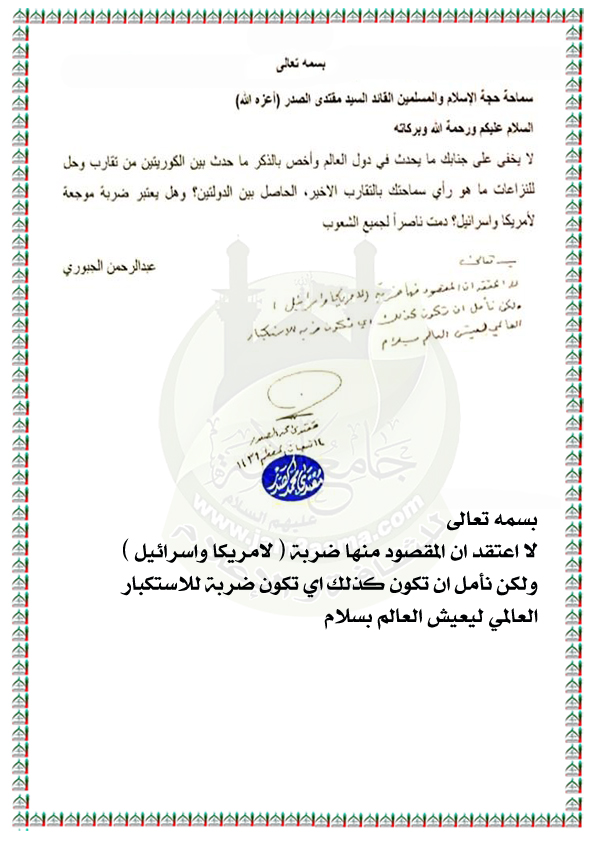 بسمه تعالى
سماحة حجة الإسلام والمسلمين القائد السيد مقتدى الصدر (أعزه الله)
السلام عليكم ورحمة الله وبركاته
لا يخفى على جنابك ما يحدث في دول العالم وأخص بالذكر ما حدث بين الكوريتين من تقارب وحل
للنزاعات ما هو رأي سماحتك بالتقارب الاخير، الحاصل بين الدولتين؟ وهل يعتبر ضربة موجعة
لأمريكا واسرائيل؟ دمت ناصراً لجميع الشعوب
عبدالرحمن الجبوري
بسمه تعالى
لا اعتقد ان المقصود منها ضربة (لامريكا واسرائيل)
ولكن نأمل ان تكون كذلك اي تكون ضربة للاستكبار
العالمي ليعيش العالم بسلام
مقتدى الصدر
مقتدى محمد الصدر
جامع
عليهم السلام
بسمه تعالى
لا اعتقد ان المقصود منها ضربة ( لامريكا واسرائيل )
ولكن نأمل ان تكون كذلك اي تكون ضربة للاستكبار
العالمي ليعيش العالم بسلام